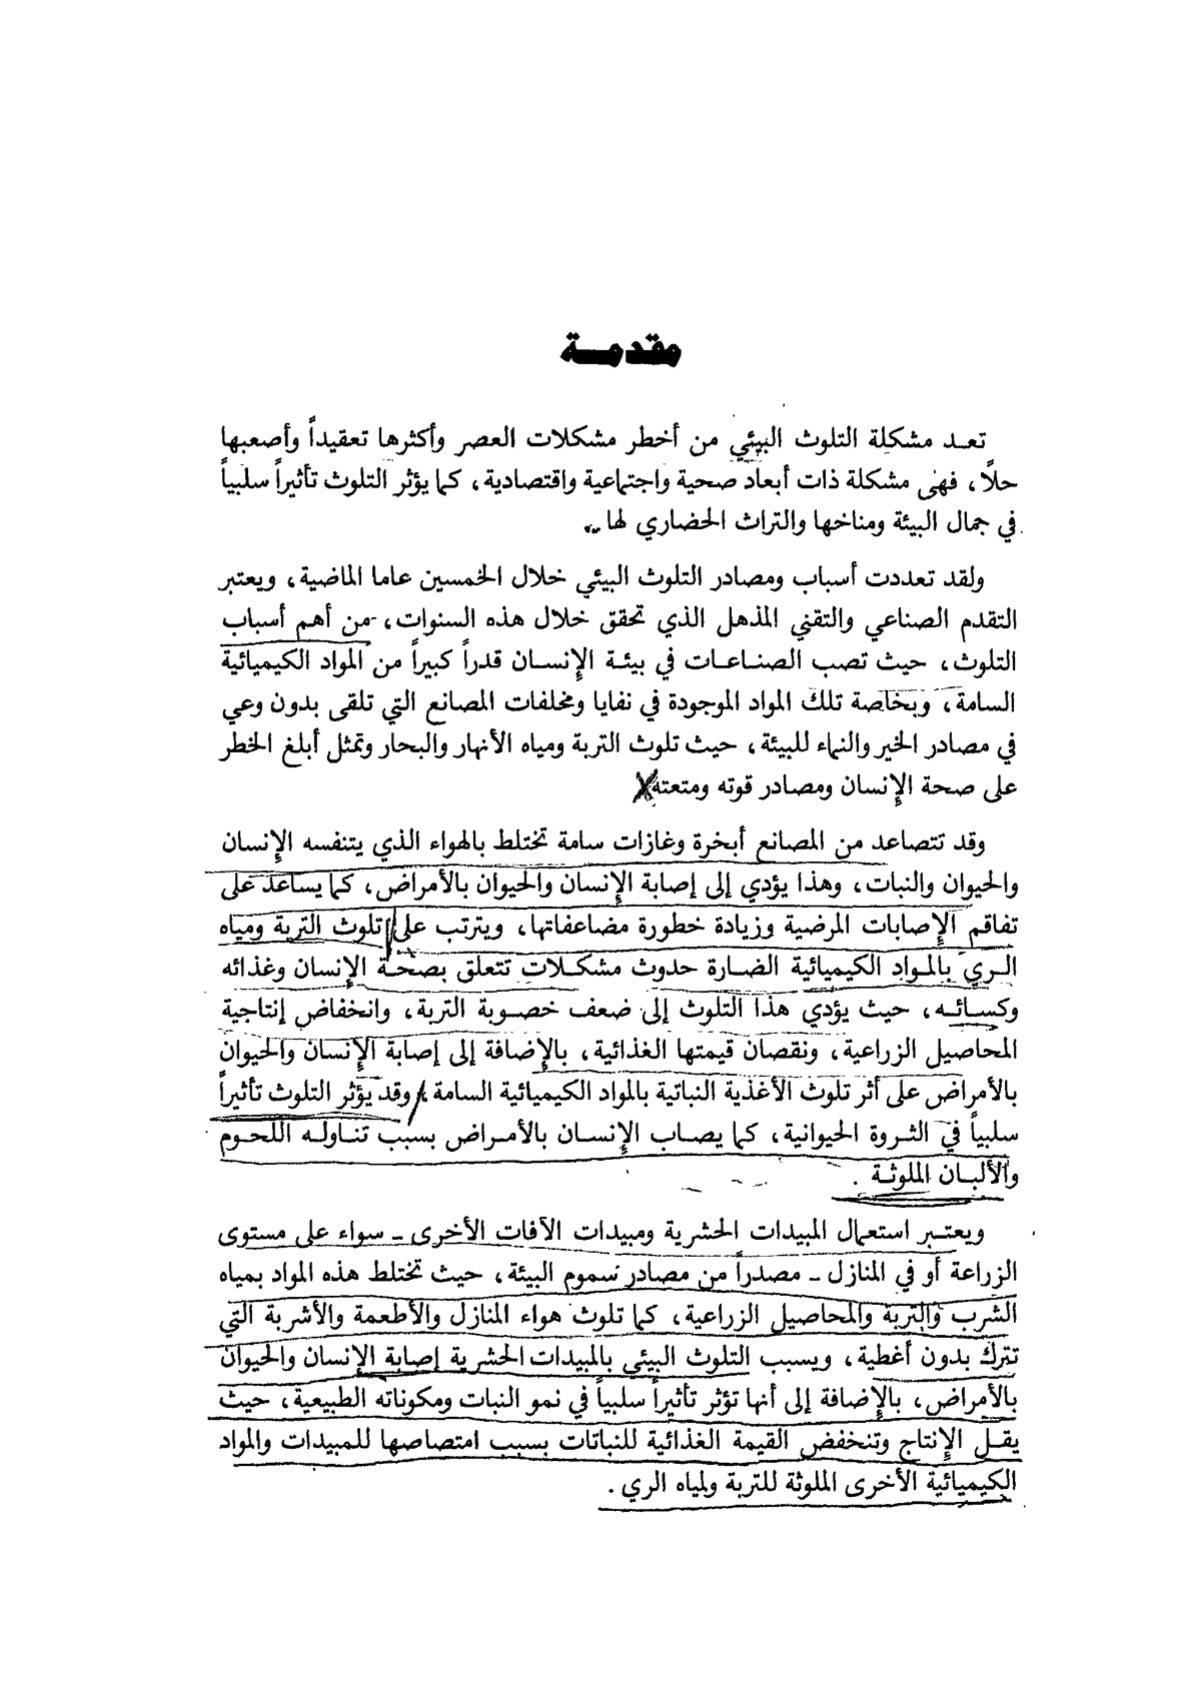 مقدمة
تعد مشكلة التلوث البيئي من أخطر مشكلات العصر وأكثرها تعقيداً وأصعبها
حلًا، فهي مشكلة ذات أبعاد صحية واجتماعية واقتصادية، كما يؤثر التلوث تأثيراً سلبياً
في جمال البيئة ومناخها والتراث الحضاري لها.
ولقد تعددت أسباب ومصادر التلوث البيئي خلال الخمسين عاما الماضية، ويعتبر
التقدم الصناعي والتقني المذهل الذي تحقق خلال هذه السنوات، من أهم أسباب
التلوث، حيث تصب الصناعات في بيئة الإنسان قدراً كبيراً من المواد الكيميائية
السامة، وبخاصة تلك المواد الموجودة في نفايا ومخلفات المصانع التي تلقى بدون وعي
في مصادر الخير والنماء للبيئة، حيث تلوث التربة ومياه الأنهار والبحار وتمثل أبلغ الخطر
على صحة الإنسان ومصادر قوته ومتعته
وقد تتصاعد من المصانع أبخرة وغازات سامة تختلط بالهواء الذي يتنفسه الإنسان
والحيوان والنبات، وهذا يؤدي إلى إصابة الإنسان والحيوان بالأمراض، كما يساعد على
تفاقم الإصابات المرضية وزيادة خطورة مضاعفاتها، ويترتب على تلوث التربة ومياه
الري بالمواد الكيميائية الضارة حدوث مشكلات تتعلق بصحة الإنسان وغذائه
وكسائه، حيث يؤدي هذا التلوث إلى ضعف خصوبة التربة، وانخفاض إنتاجية
المحاصيل الزراعية، ونقصان قيمتها الغذائية، بالإضافة إلى إصابة الإنسان والحيوان
بالأمراض على أثر تلوث الأغذية النباتية بالمواد الكيميائية السامة، وقد يؤثر التلوث تأثيراً
سلبياً في الثروة الحيوانية، كما يصاب الإنسان بالأمراض بسبب تناوله اللحوم
والألبان الملوثة .
ويعتبر استعمال المبيدات الحشرية ومبيدات الآفات الأخرى ـ سواء على مستوى
الزراعة أو في المنازل ـ مصدراً من مصادر سموم البيئة، حيث تختلط هذه المواد بمياه
الشرب والتربة والمحاصيل الزراعية، كما تلوث هواء المنازل والأطعمة والأشربة التي
تترك بدون أغطية، ويسبب التلوث البيئي بالمبيدات الحشرية إصابة الإنسان والحيوان
بالأمراض، بالإضافة إلى أنها تؤثر تأثيراً سلبياً في نمو النبات ومكوناته الطبيعية، حيث
يقل الإنتاج وتنخفض القيمة الغذائية للنباتات بسبب امتصاصها للمبيدات والمواد
الكيميائية الأخرى الملوثة للتربة ولمياه الري .